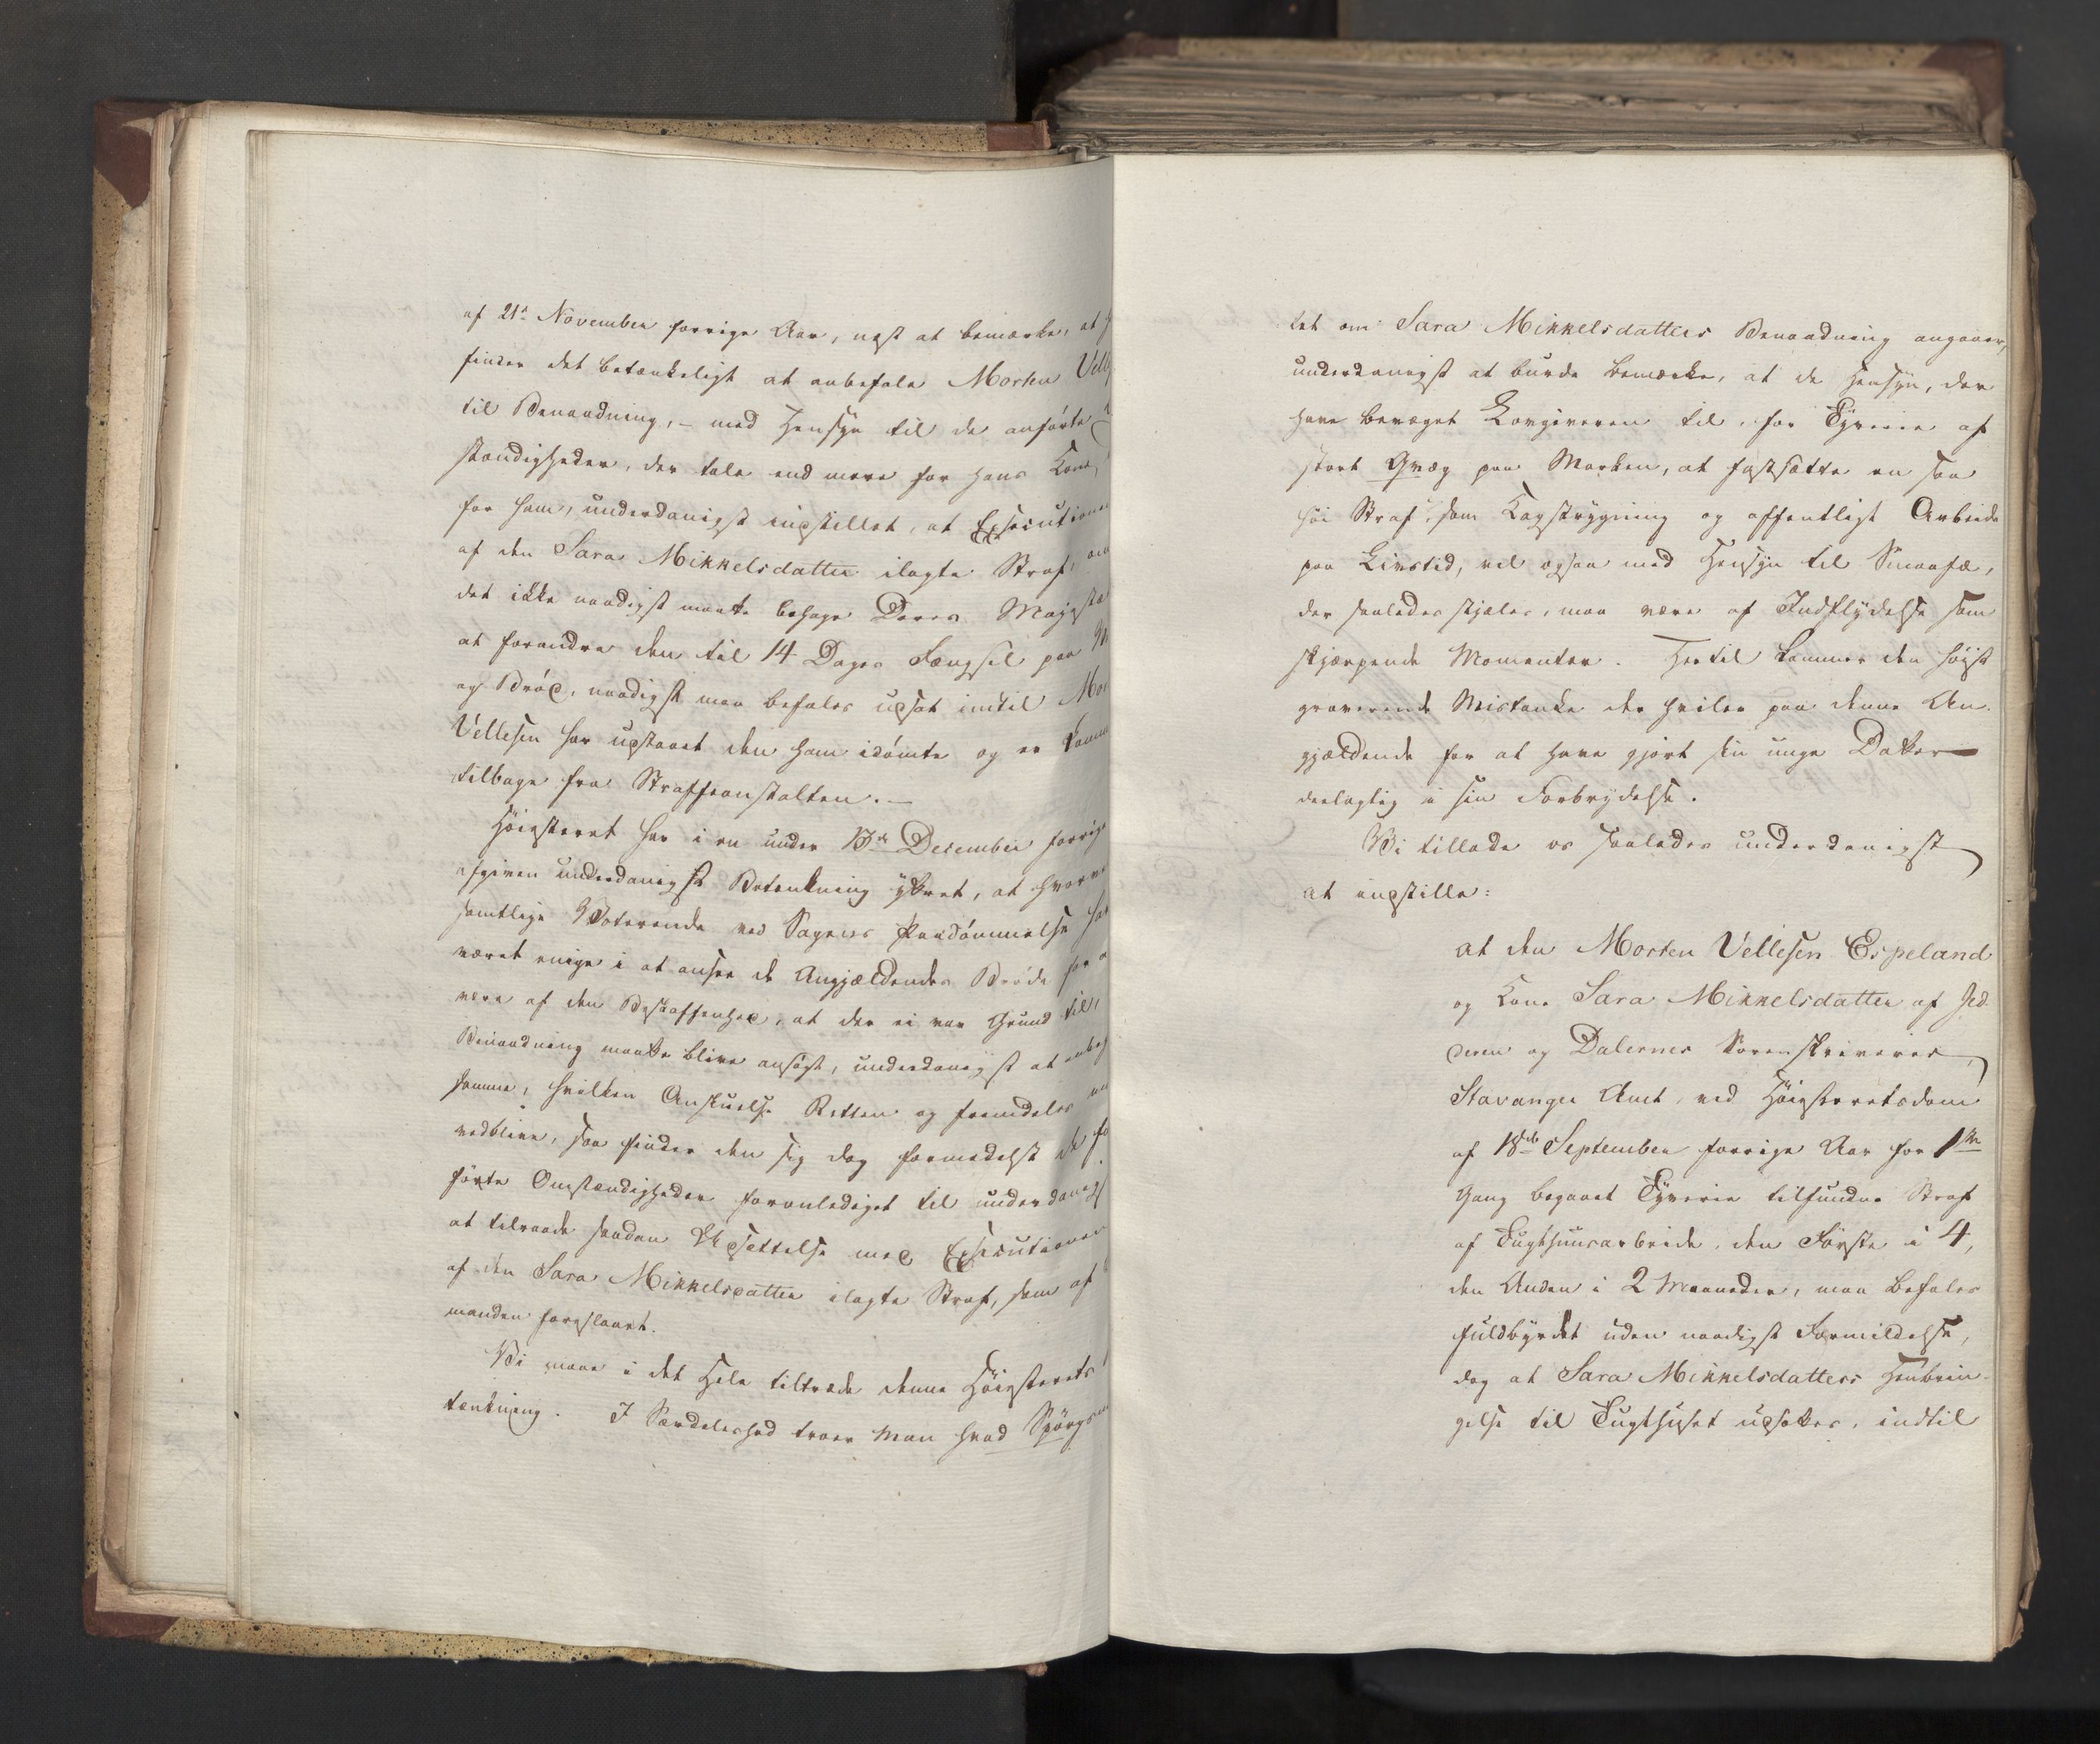 af 21de November forrige Aar, næst at bemærke, at
finder det betænkeligt at anbefale Morten Velle
til Benaadning, – med Hensyn til de anførte
stændigheder, der tale end mere for hans Kone,
for ham, underdanigst indstillet, at Executionen
af den Sara Mikkelsdatter ilagte Straf, om
det ikke naadigst maatte behage Deres Majestæ
at forandre den til 14 Dages Fængsel paa
og Brød, naadigst maa befales udsat indtil Mor
Vellesen har udstaaet den ham idømte og er kommen
tilbage fra Straffeanstalten. –
Høiesteret har i en under 13de December forrige
afgiven underdanigst Betænkning yttret, at hvorvel
samtlige Voterende ved Sagens Paadømmelse har
været enige i at ansee de Angjældendes Brøde for a
være af den Beskaffenhed, at der ei var Grund til,
Benaadning maatte blive ansøgt, underdanigst at anbef
samme, hvilken Anskuelse Retten og fremdeles
vedbliver, saa finder den sig dog formedelst de
førte Omstændigheder foranlediget til underdanigst
at tilraade saadan Udsættelse med Executionen
af den Sara Mikkelsdatter ilagte Straf, som af
manden foreslaaet.
Vi maae i det Hele tiltræde denne Høiesterets
tænkning. I Særdeleshed troer man hvad Spørgsm
let om Sara Mikkelsdatters Benaadning angaaer,
underdanigst at burde bemærke, at de Hensyn, der
have bevæget Lovgiveren til, for Tyverie af
stort Qvæg paa Marken, at fastsætte en saa
høi Straf, som Kagstrygning og offentligt Arbeide
paa Livstid, vel ogsaa med Hensyn til Smaafæ,
der saaledes stjæles, maa være af Indflydelse som
skjærpende Momenter. Hertil kommer den høist
graverende Mistanke der hviler paa denne An-
gjældende for at have gjort sin unge Datter
deelagtig i sin Forbrydelse.
Vi tillade os saaledes underdanigst
at indstille:
at den Morten Vellesen Espeland
og Kone Sara Mikkelsdatter af Jed-
deren og Dalernes Sorenskriverie,
Stavanger Amt, ved Høiesteretsdom
af 18de September forrige Aar for 1ste
Gang begaaet Tyverie tilfundne Straf
af Tugthuusarbeide, den Første i 4,
den Anden i 2 Maaneder, maa befales
fuldbyrdet uden naadigst Formildelse,
dog at Sara Mikkelsdatters Henbrin-
gelse til Tugthuset udsættes, indtil